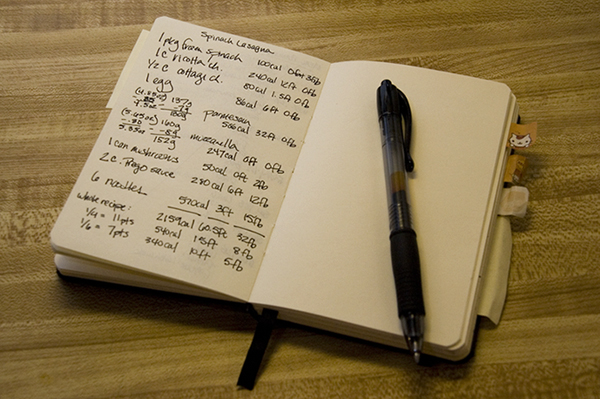 Spinach Lasagna
1 pkg frozen spinach 100cal 0ft 3fb
1 c ricotta ch. 240cal 12ft 0fb
1/2 c cottage ch. 80cal 1.5ft 0fb
1 egg 86cal 6ft 0fb
(4.85oz) 137g parmesan
-7g 506cal 32ft 0fb
130g
(5.65oz) 160g mozzarella
-.30 -8g 247cal 0ft 0fb
5.35oz 152g
1 can mushrooms 50cal 0ft 2fb
2 c. Prego sauce 280cal 6ft 12fb
6 noodles 570cal 3ft 15fb
whole recipe: 2159cal 60.5ft 32fb
1/4 = 11pts 540cal 15ft 8fb
1/6 = 7pts 340cal 10ft 5fb